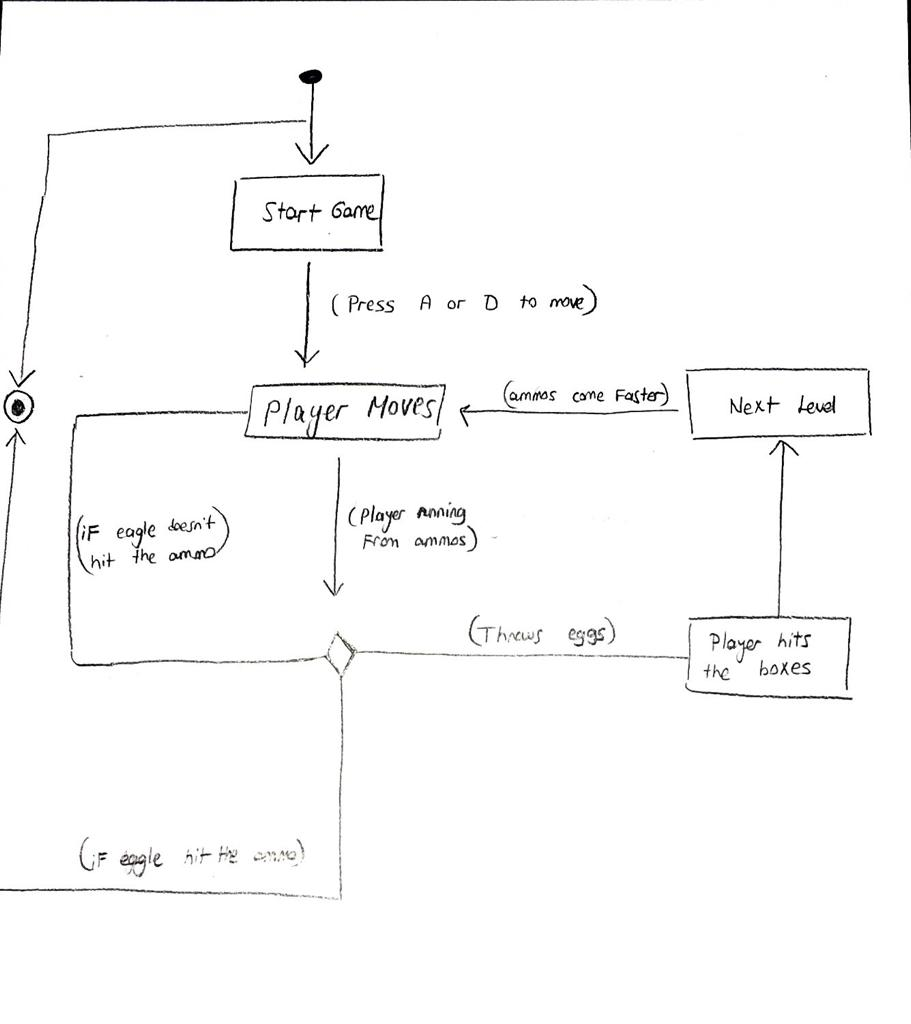 Start Game
(Press A or D to move)
(ammos come Faster)
Next Level
Player Moves
(iF eagle doesn't
hit the ammo)
(Player running
From ammos)
(Throws eggs)
Player hits
the boxes
(iF eagle hit the ammo)